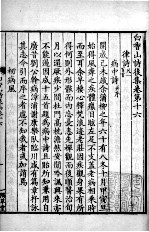 白香山詩後集卷第十六
律詩
病中詩十五首 并序
開成己未歲余蒲柳之年六十有八冬十月甲寅旦
始得風瘅之疾體矕目眩左足不支蓋老病相乘時
而至耳余早棲心釋梵浪跡老莊因疾觀身果有所
得何則外形骸而內忘憂恚先禪觀而後順醫治旬
月以還厥疾少間杜門高枕澹然安閑吟諷興來亦
不能遏因成十五首題為病中詩且貽所知兼用自
廣昔劉公幹病漳浦謝康樂臥臨川咸有篇章抒詠
其志今引而序之者慮不知我者或加誚焉
初病風